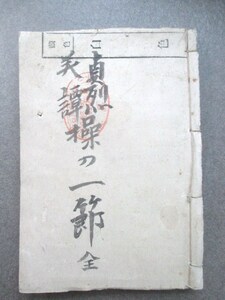 貞烈
美譚操の一節 全